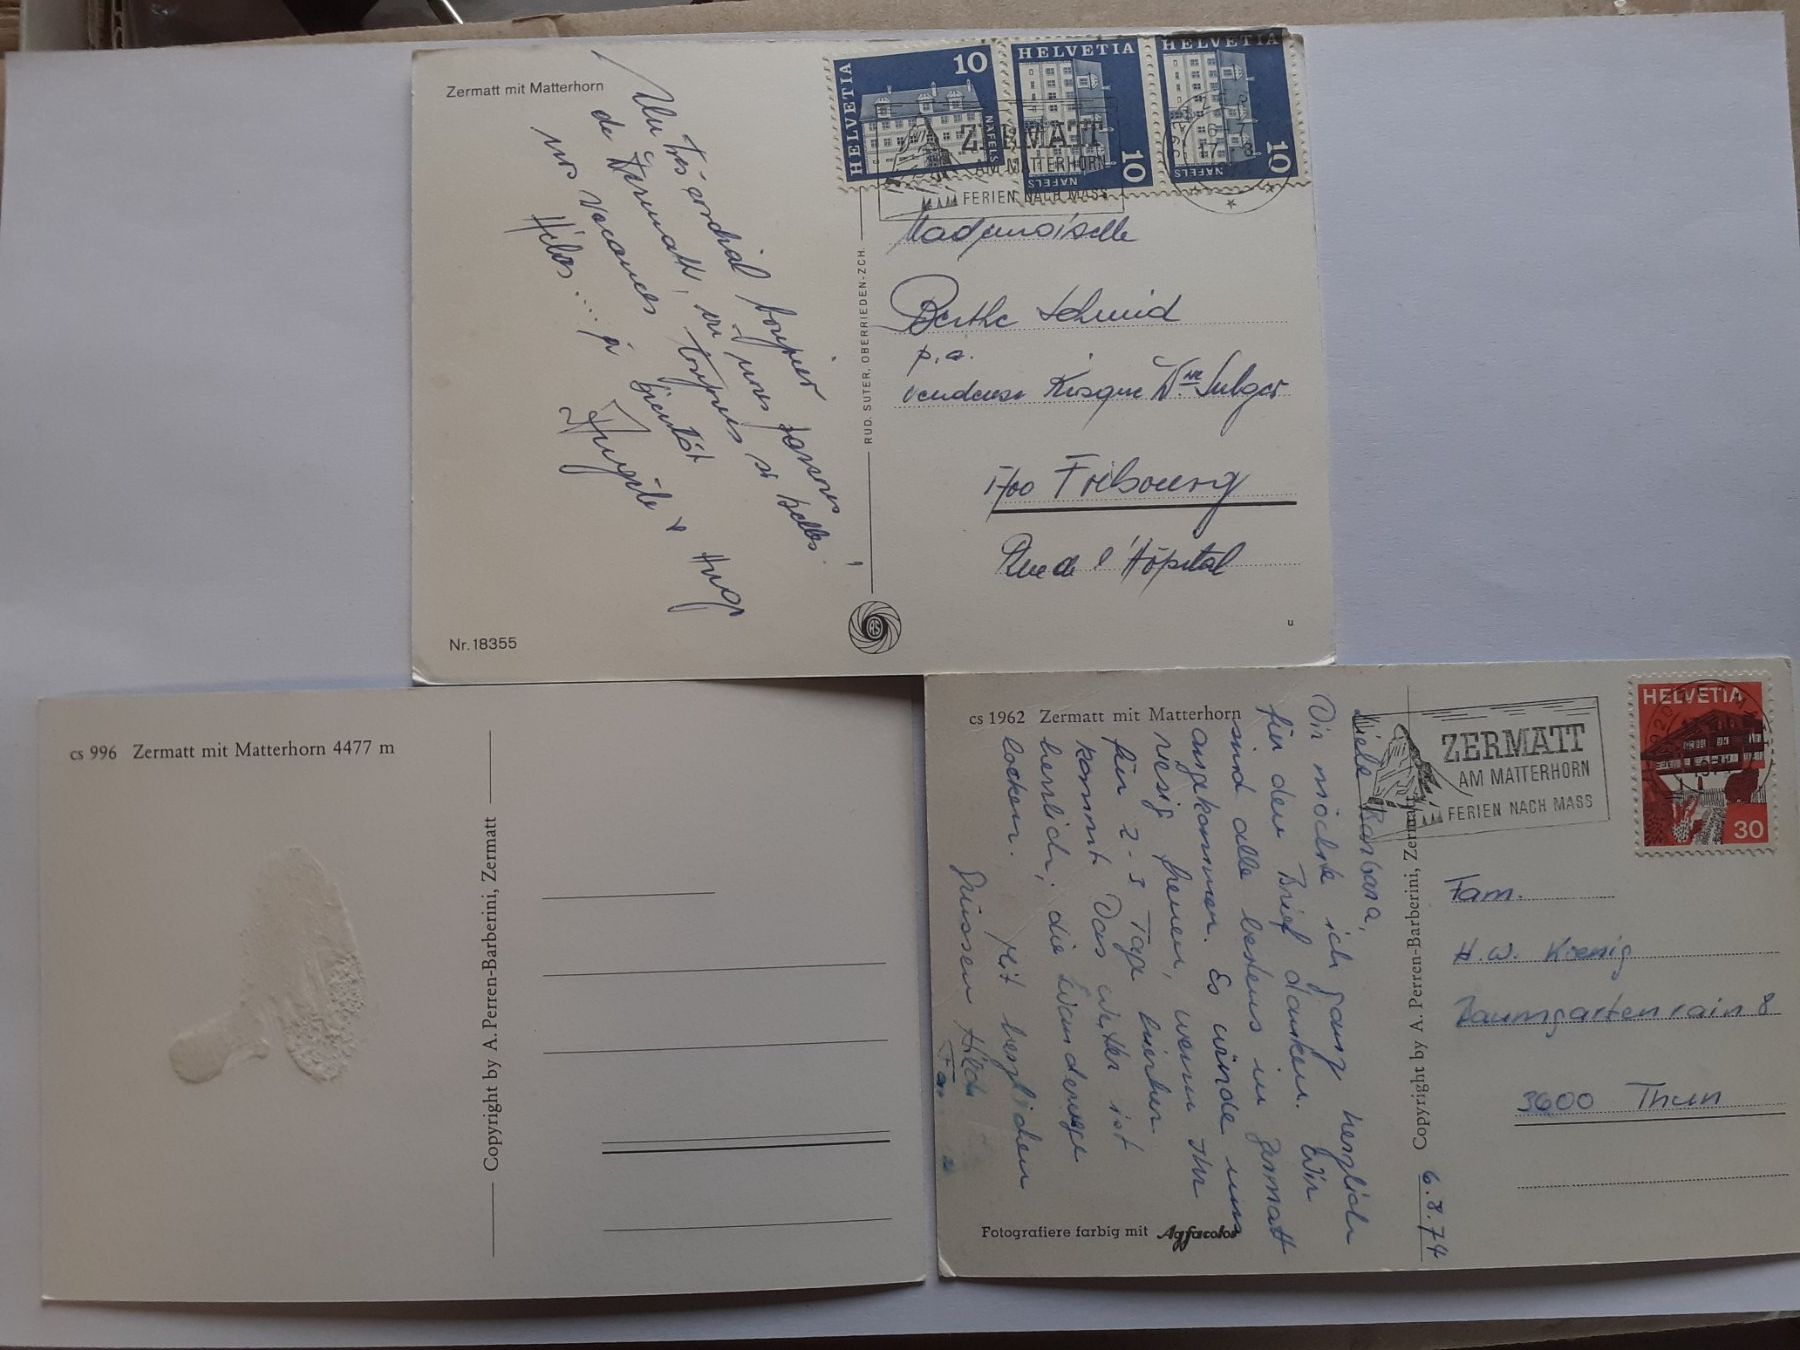 Zermatt mit Matterhorn
Un très cordial bonjour
de Zermatt, où nous passons
nos vacances, toujours si belles!
Hélas.... à bientôt
Angèle & Hugo
Nr. 18355
RUD. SUTER, OBERRIEDEN-ZCH.
HELVETIA
10
NÄFELS
HELVETIA
10
NÄFELS
HELVETIA
10
NÄFELS
ZERMATT
AM MATTERHORN
FERIEN NACH MASS
Mademoiselle
Berthe Schmid
p.a.
vendeuse Kiosque Sulger
1700 Fribourg
Rue de l'Hôpital
u
cs 996 Zermatt mit Matterhorn 4477 m
Copyright by A. Perren-Barberini, Zermatt
cs 1962 Zermatt mit Matterhorn
Liebe Barbara,
Dir möchte ich ganz herzlich
für den Brief danken. Wir
sind alle bestens in Zermatt
angekommen. Es würde uns
riesig freuen, wenn Ihr
für 2-3 Tage hierher
kommt. Das Wetter ist
herrlich, die Wanderwege
locken. Mit herzlichen
Grüssen
Fam.
Fotografiere farbig mit Agfacolor
Copyright by A. Perren-Barberini, Zermatt
6.8.74
ZERMATT
AM MATTERHORN
FERIEN NACH MASS
HELVETIA
30
Fam.
H.W. Koenig
Baumgartenrain 8
3600 Thun